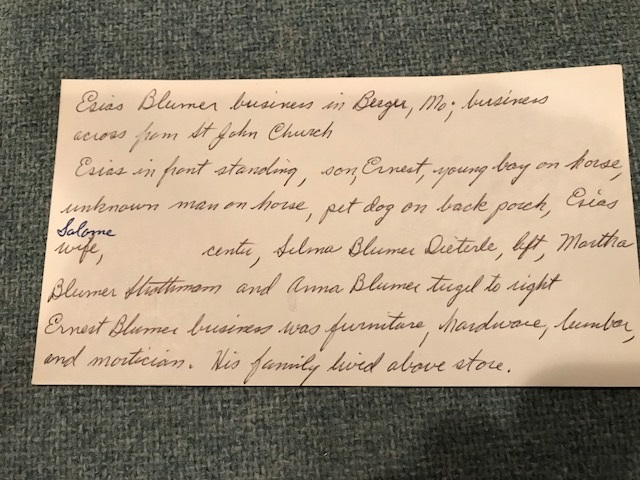 Esias Blumer business in Berger, Mo; business
across from St John Church
Esias in front standing, son, Ernest, young boy on horse,
unknown man on horse, pet dog on back porch, Esias
Salome
wife, center, Selma Blumer Dieterle, left, Martha
Blumer Strothmann and Anna Blumer to right
Ernest Blumer business was furniture, hardware, lumbar,
and mortician. His family lived above store.